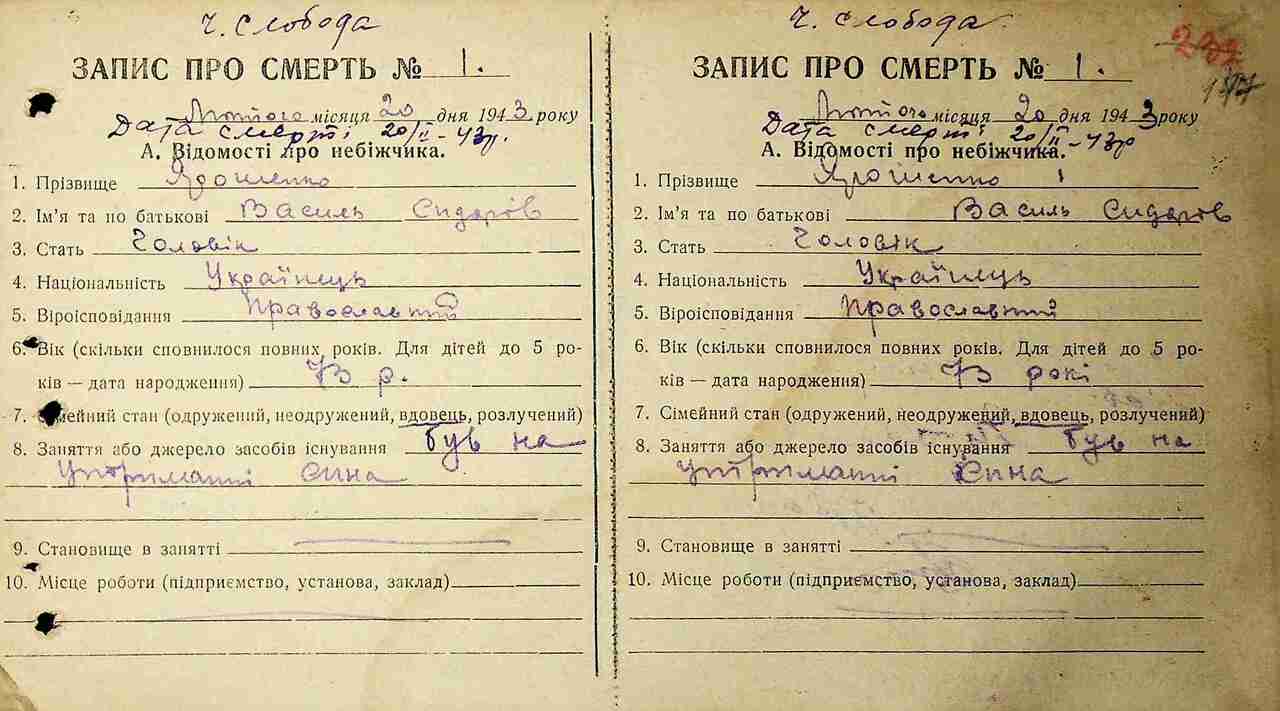 Ч. Слобода
ЗАПИС ПРО СМЕРТЬ № 1.
Лютого місяця 20 дня 1943 року
Дата смерті 20/II - 43р.
А. Відомості про небіжчика.
1. Прізвище Ярошенко
2. Ім'я та по батькові Василь Сидорів
3. Стать Чоловік
4. Національність Українець
5. Віроісповідання Православний
6. Вік (скільки сповнилося повних років. Для дітей до 5 ро-
ків — дата народження) 73 р.
7. Сімейний стан (одружений, неодружений, вдовець, розлучений)
8. Заняття або джерело засобів існування був на
утриманні сина
9. Становище в занятті
10. Місце роботи (підприємство, установа, заклад)
Ч. Слобода
ЗАПИС ПРО СМЕРТЬ № 1.
Лютого місяця 20 дня 1943 року
Дата смерті 20/II - 43р
А. Відомості про небіжчика.
1. Прізвище Ярошенко
2. Ім'я та по батькові Василь Сидорів
3. Стать Чоловік
4. Національність Українець
5. Віроісповідання Православний
6. Вік (скільки сповнилося повних років. Для дітей до 5 ро-
ків — дата народження) 73 рокі
7. Сімейний стан (одружений, неодружений, вдовець, розлучений)
8. Заняття або джерело засобів існування був на
утриманні сина
9. Становище в занятті
10. Місце роботи (підприємство, установа, заклад)